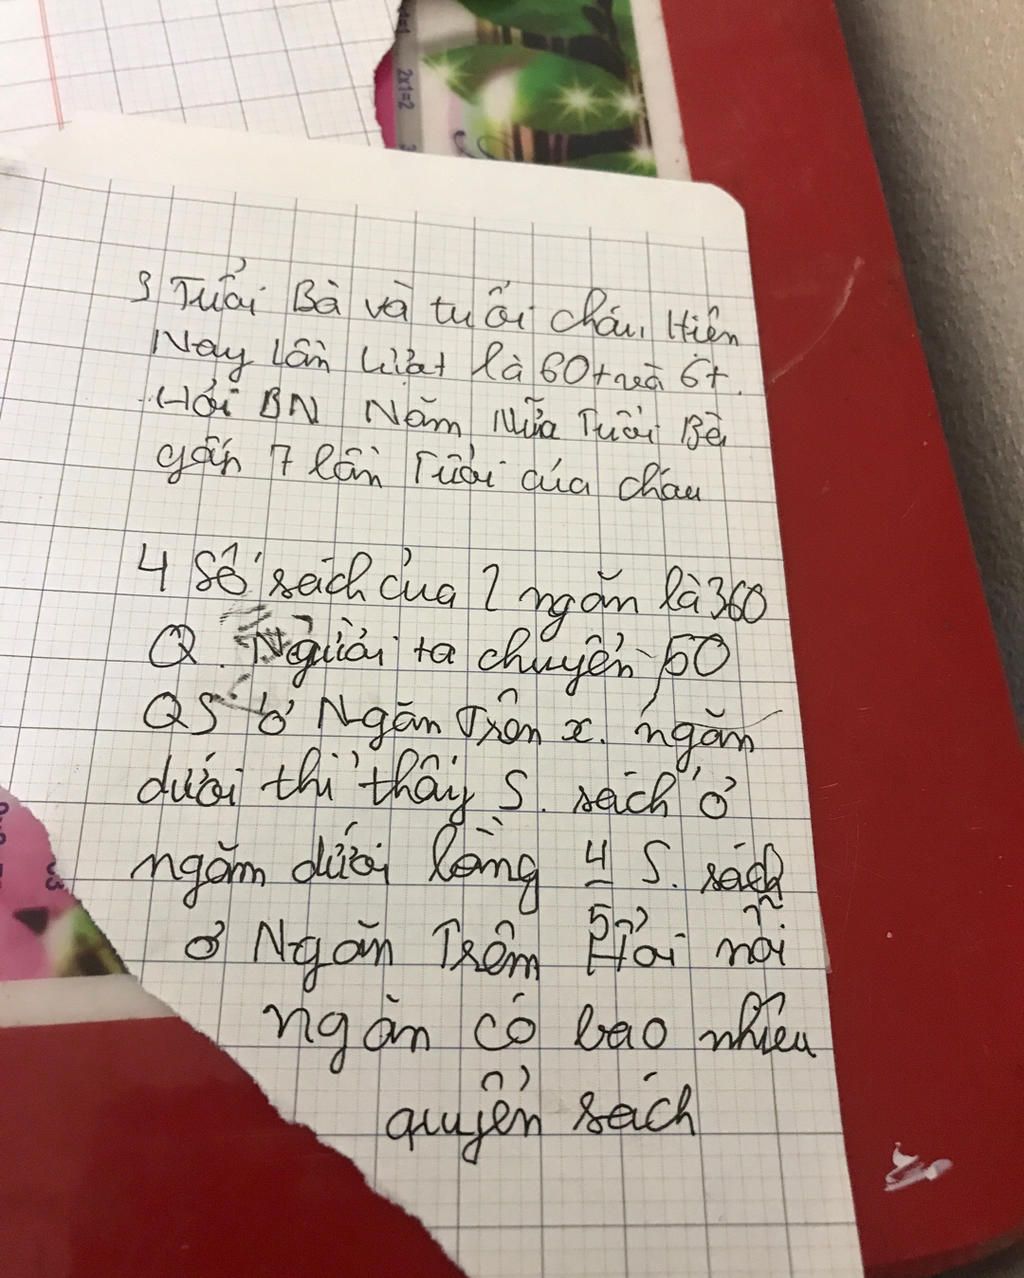 2x1=2
3 Tuổi Bà và tuổi cháu Hiện
Nay lần lượt là 60t và 6t.
Hỏi BN Năm Nữa Tuổi Bà
gấp 7 lần Tuổi của cháu
4 Số sách của 2 ngăn là 360
Q. Người ta chuyển 50
QS ở Ngăn Trên x. ngăn
dưới thì thấy S. sách ở
ngăn dưới bằng 4/5 S. sách
ở Ngăn Trên Hỏi mỗi
ngăn có bao nhiêu
quyển sách